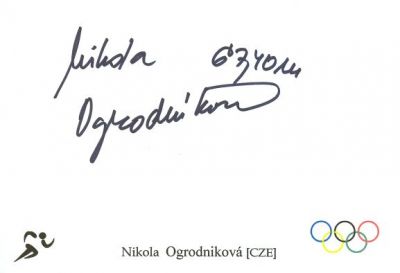 Nikola 67,40m
Ogrodníková
Nikola Ogrodniková [CZE]